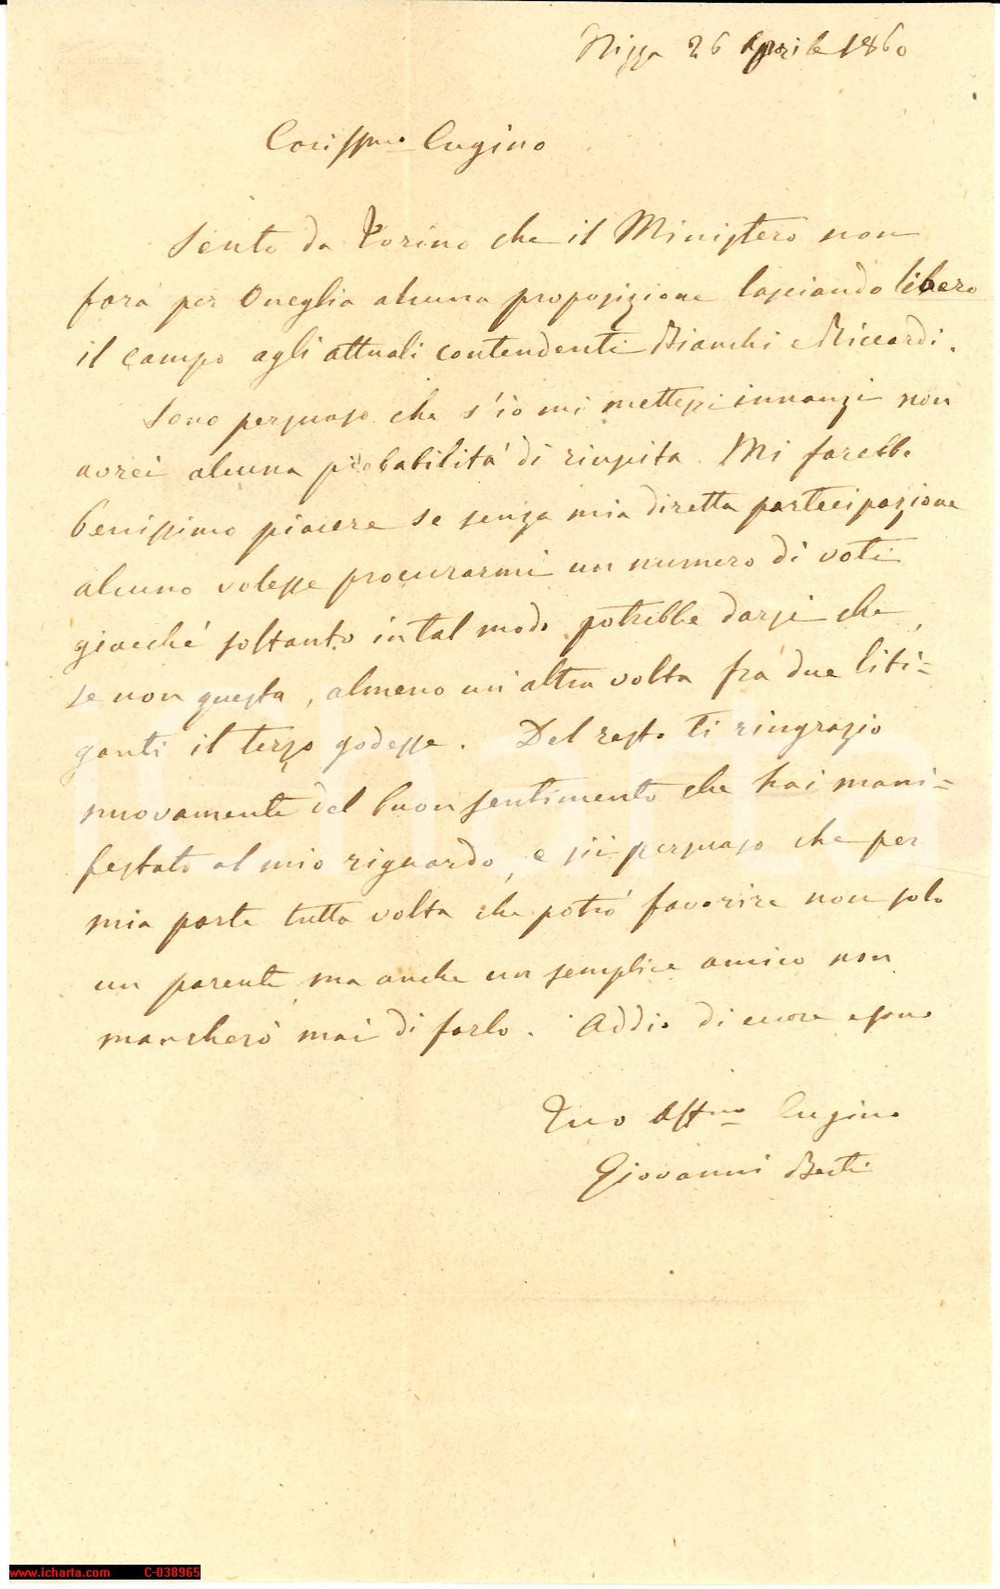 Nizza 26 Aprile 1860
Cariss.mo Cugino
Sento da Torino che il Ministero non
farà per Oneglia alcuna proposizione lasciando libero
il campo agli attuali contendenti Bianchi e Riccardi.
Sono persuaso che s'io mi mettessi innanzi non
avrei alcuna probabilità di riuscita. Mi farebbe
benissimo piacere se senza mia diretta partecipazione
alcuno volesse procurarmi un numero di voti
giacché soltanto in tal modo potrebbe darsi che,
se non questa, almeno un'altra volta fra due liti=
ganti il terzo godesse. Del resto ti ringrazio
nuovamente del buon sentimento che hai mani=
festato al mio riguardo, e sii persuaso che per
mia parte tutta volta che potrò favorire non solo
un parente, ma anche un semplice amico non
mancherò mai di farlo. Addio di cuore e sono
Tuo Aff.mo Cugino
Giovanni
www.icharta.com C-038965